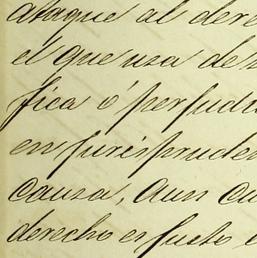 ataque al dere
el que usa de s
fica ó perjudi
en jurispruden
causa, aun cu
derecho es justo